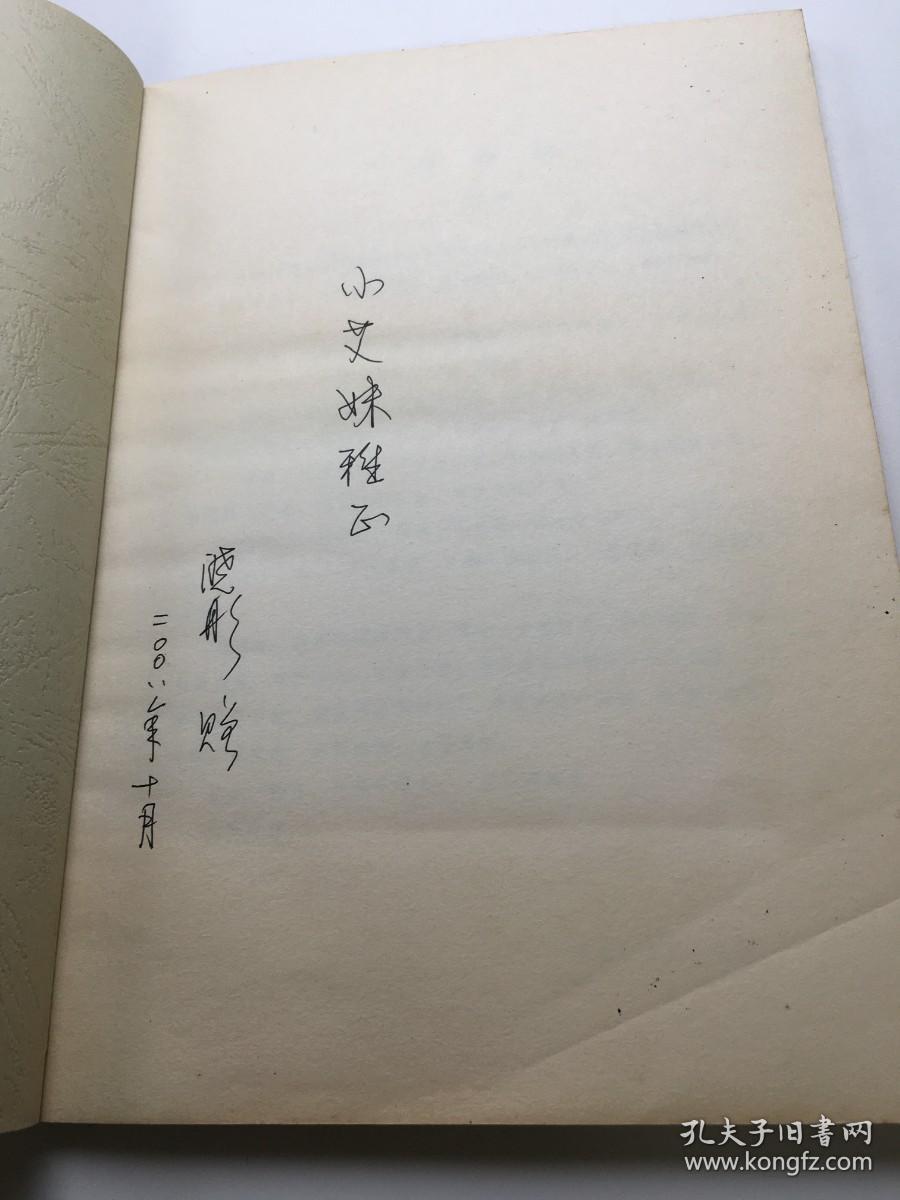 小艾妹雅正
晓彤 赠
二〇〇六年十月
孔夫子旧書网
www.kongfz.com